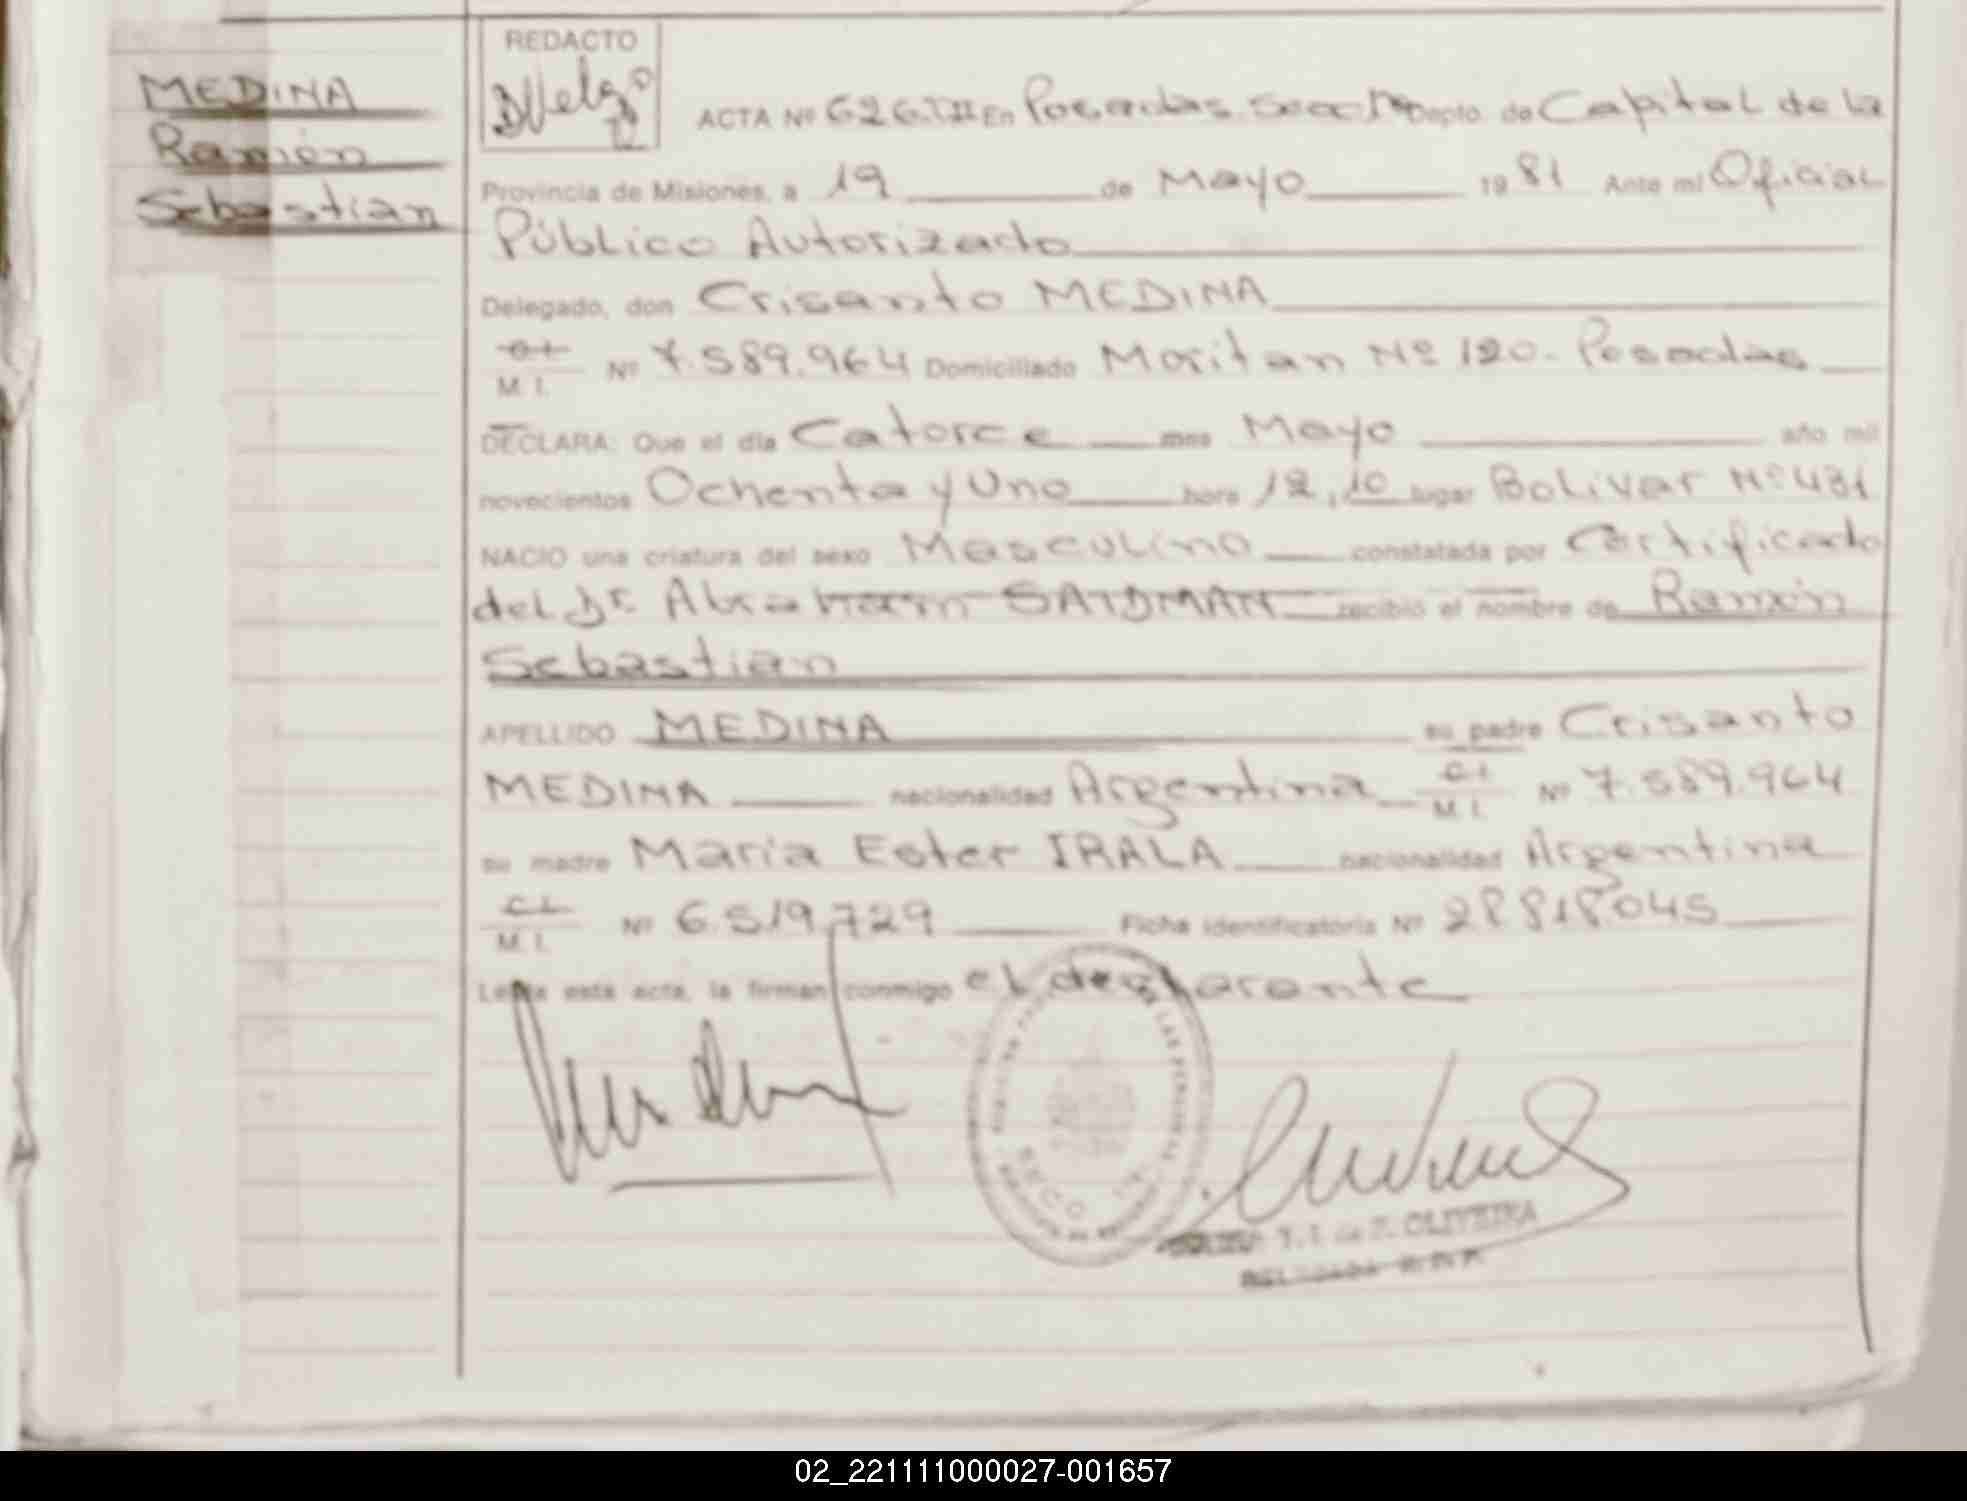 MEDINA
Ramón
Sebastian
REDACTO
ACTA Nº 626.TII En Posadas Secc 1ª Depto. de Capital de la
Provincia de Misiones, a 19 de Mayo 1981 Ante mí Oficial
Público Autorizado
Delegado, don Crisanto MEDINA
C.I.
M. I. Nº 7.589.964 Domiciliado Moritan Nº 120 - Posadas
DECLARA: Que el día Catorce mes Mayo año mil
novecientos Ochenta y Uno hora 12,10 lugar Bolivar Nº 431
NACIO una criatura del sexo Masculino constatada por Certificado
del Dr. Abraham SAIDMAN recibió el nombre de Ramón
Sebastian
APELLIDO MEDINA su padre Crisanto
MEDINA nacionalidad Argentina C.I.
M. I. Nº 7.589.964
su madre Maria Ester IRALA nacionalidad Argentina
C.I.
M. I. Nº 6.519.729 Ficha identificatoria Nº 28.818.045
Leída esta acta, la firman conmigo el declarante
OLIVEIRA
02_221111000027-001657